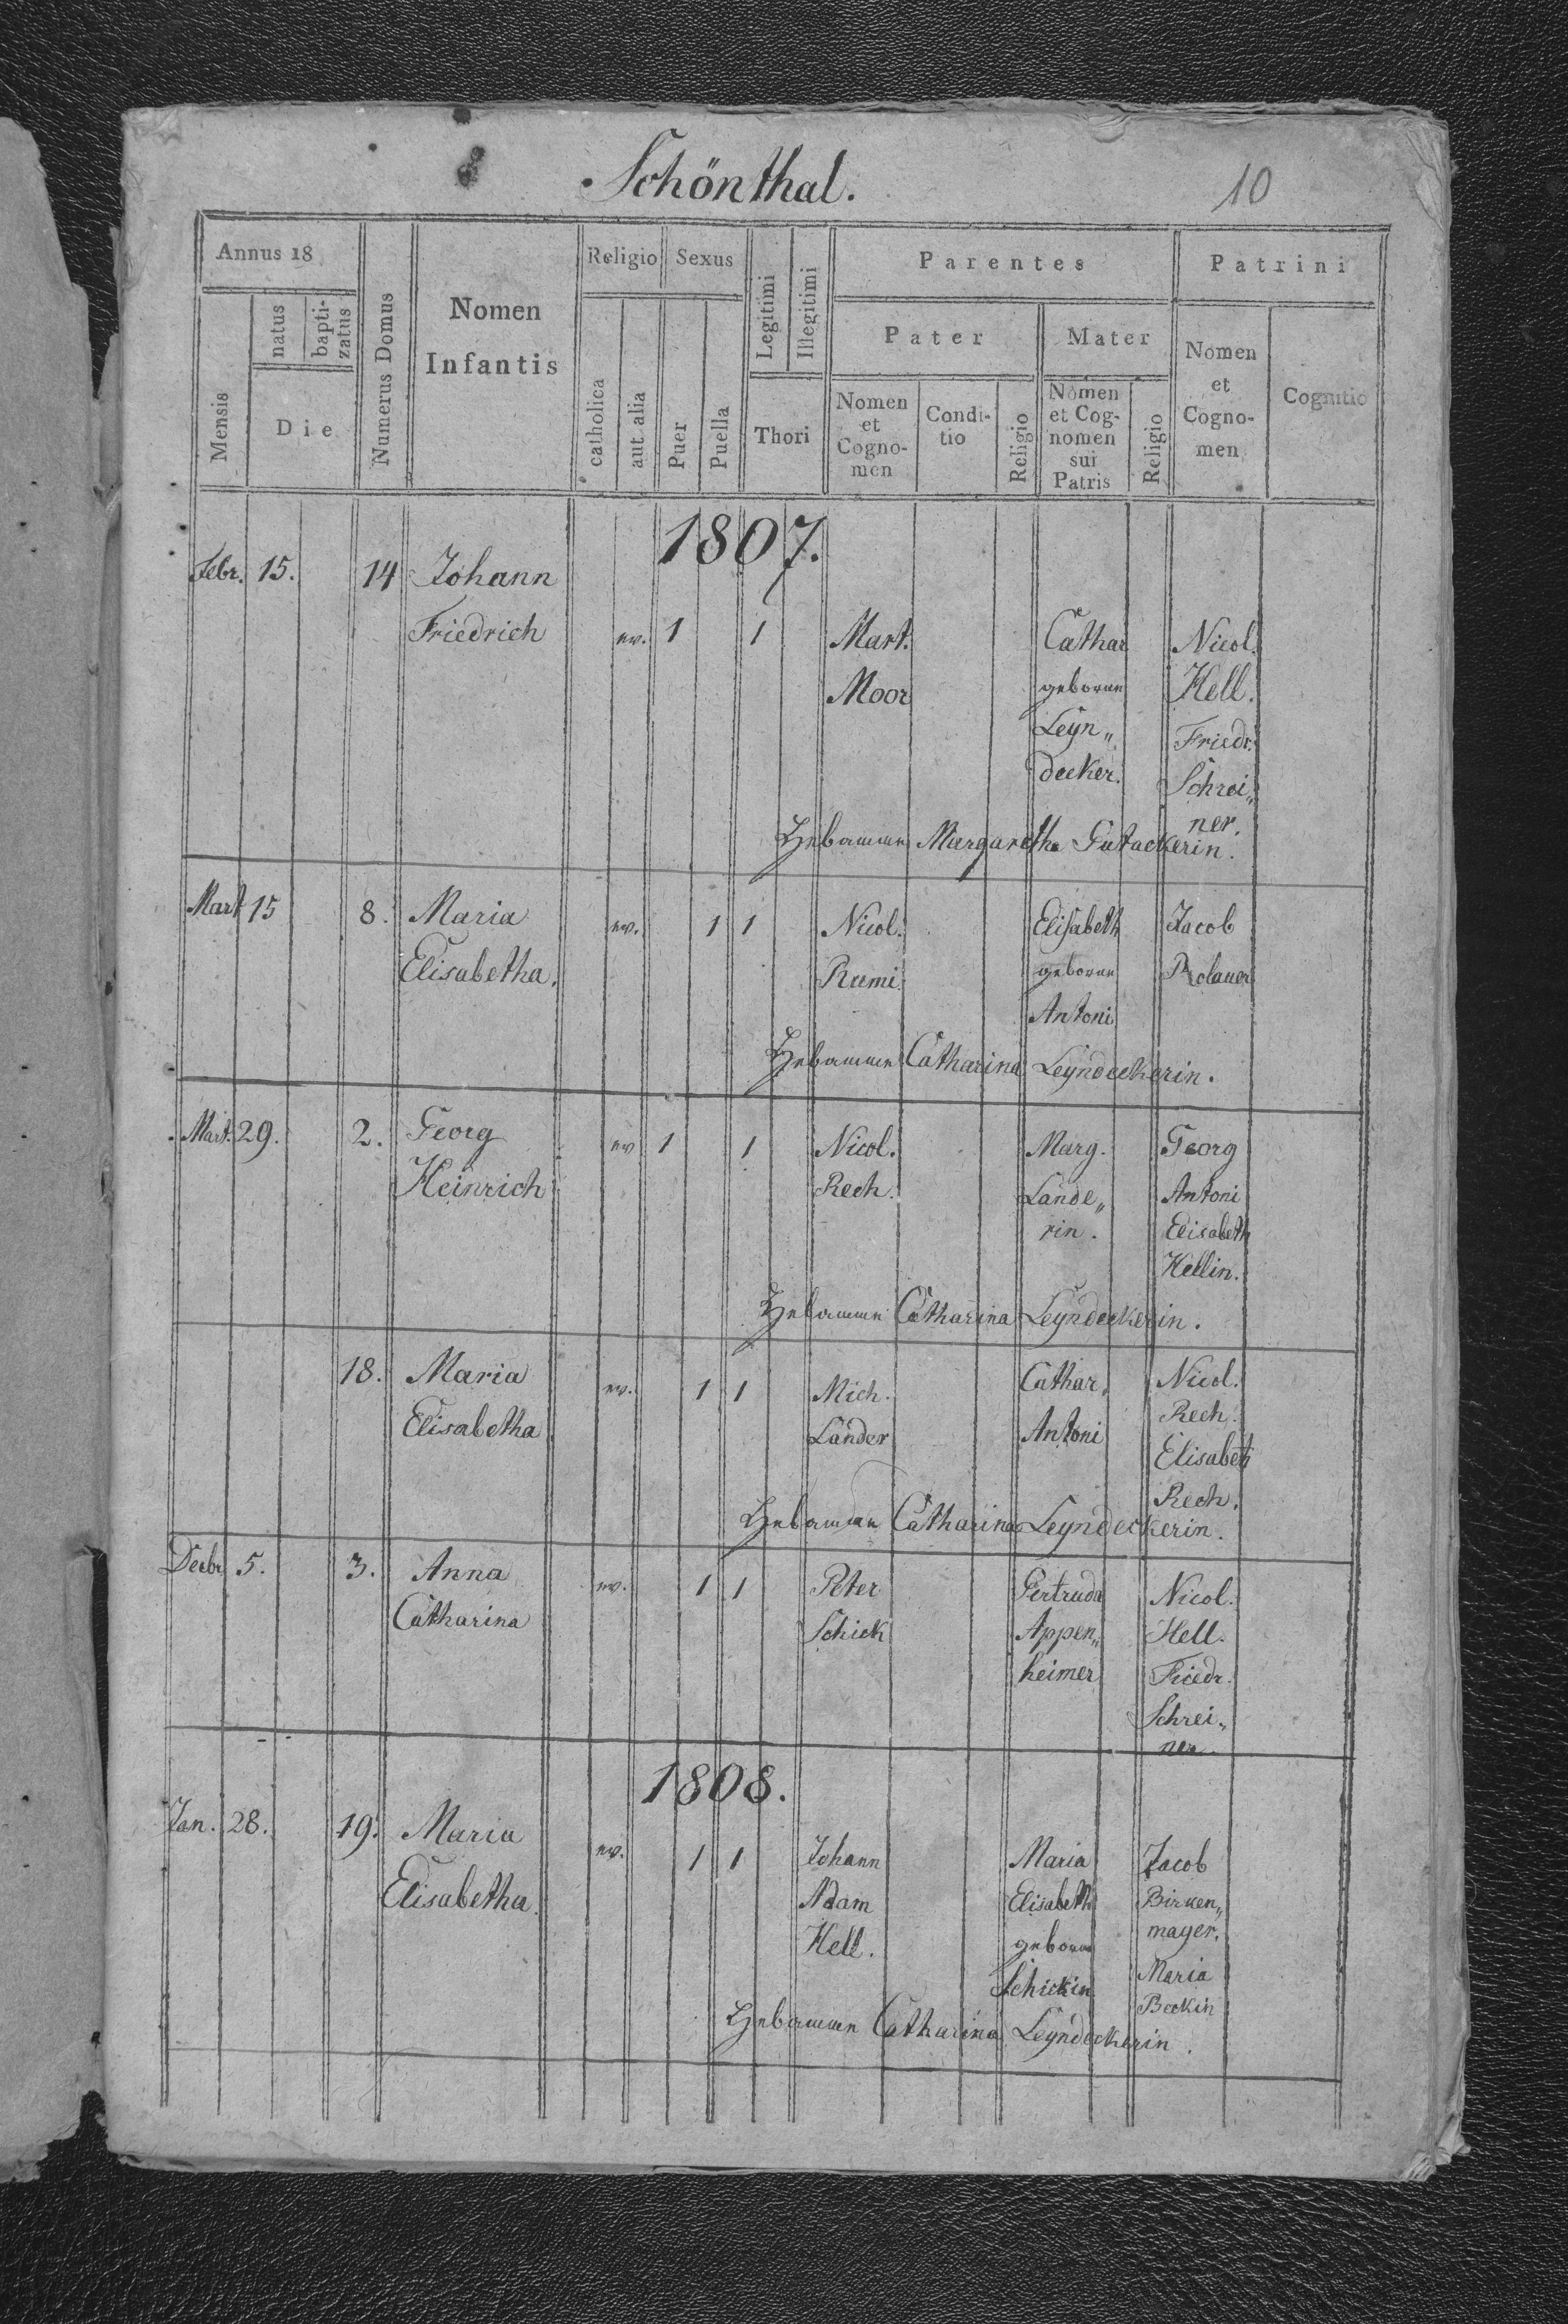 Schönthal.
10
Annus 18
Mensis
natus
baptizatus
Die
Numerus Domus
Nomen
Infantis
Religio
catholica
aut alia
Sexus
Puer
Puella
Legitimi
Illegitimi
Thori
Parentes
Pater
Nomen
et
Cogno-
men
Condi-
tio
Religio
Mater
Nomen
et Cog-
nomen
sui
Patris
Religio
Patrini
Nomen
et
Cogno-
men
Cognitio
1807.
Febr. 15. 14 Johann
Friedrich ev. 1 1 Mart. Cathar Nicol.
Moor geborne Hell.
Leyn„ Friedr.
decker. Schrei„
ner.
Hebamme Margaretha Gutackerin.
Mart 15 8. Maria ev. 1 1 Nicol. Elisabeth Jacob
Elisabetha. geborne
Antoni
Hebamme Catharina Leyndeckerin.
Mart. 29. 2. Georg ev 1 1 Nicol. Marg. Georg
Heinrich Rech. Lande„ Antoni
rin. Elisabeth
Hellin.
Hebamme Catharina Leyndeckerin.
18. Maria ev. 1 1 Mich. Cathar. Nicol.
Elisabetha Lander Antoni Rech.
Elisabeth
Rech.
Hebamme Catharina Leyndeckerin.
Decbr 5. 3. Anna ev. 1 1 Peter Gertruda Nicol.
Catharina Schick Appen„ Hell.
heimer Friedr.
Schrei„
ner.
1808.
Jan. 28. 19. Maria ev. 1 1 Johann Maria Jacob
Elisabetha. Adam Elisabeth Birken„
Hell. geborne mayer.
Schickin Maria
Beckin
Hebamme Catharina Leyndeckerin.